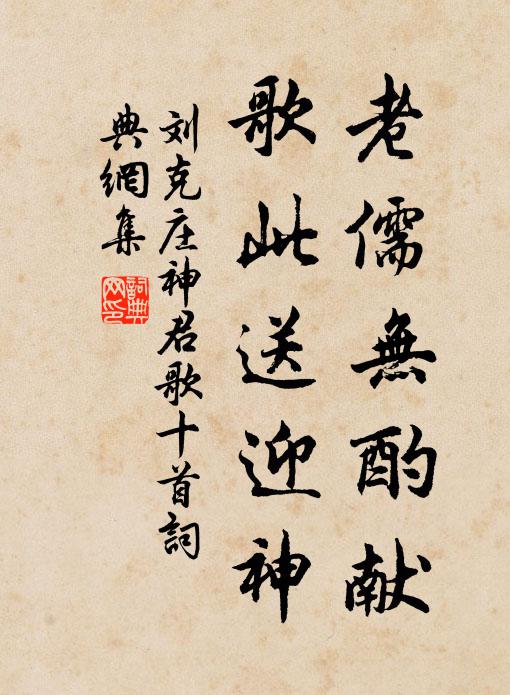 老儒無酌献
歌此送迎神
刘克庄神君歌十首詞
典網集
詞典
网印